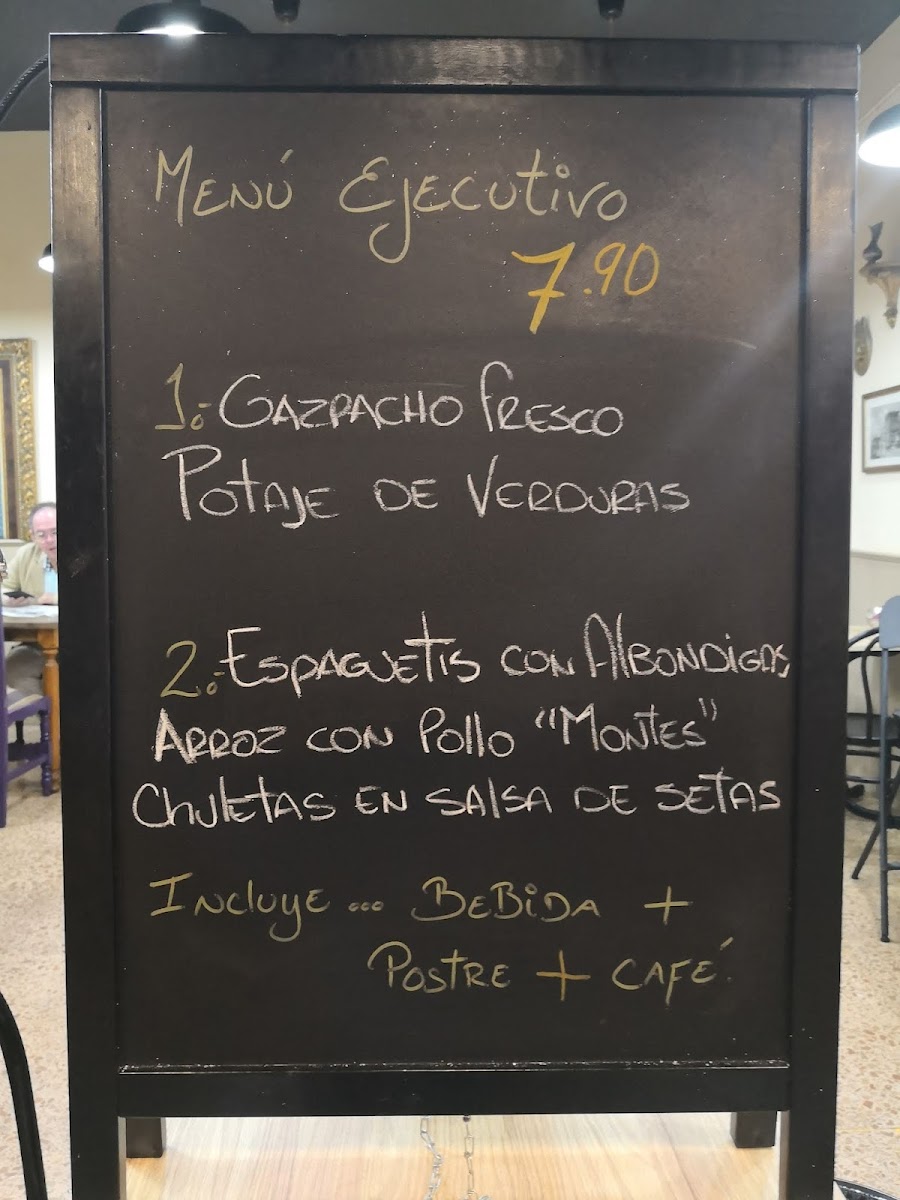 Menú Ejecutivo
7.90
1º- Gazpacho fresco
Potaje de Verduras
2º- Espaguetis con Albondigas
Arroz con Pollo "Montes"
Chuletas en salsa de setas
Incluye... Bebida +
Postre + café.